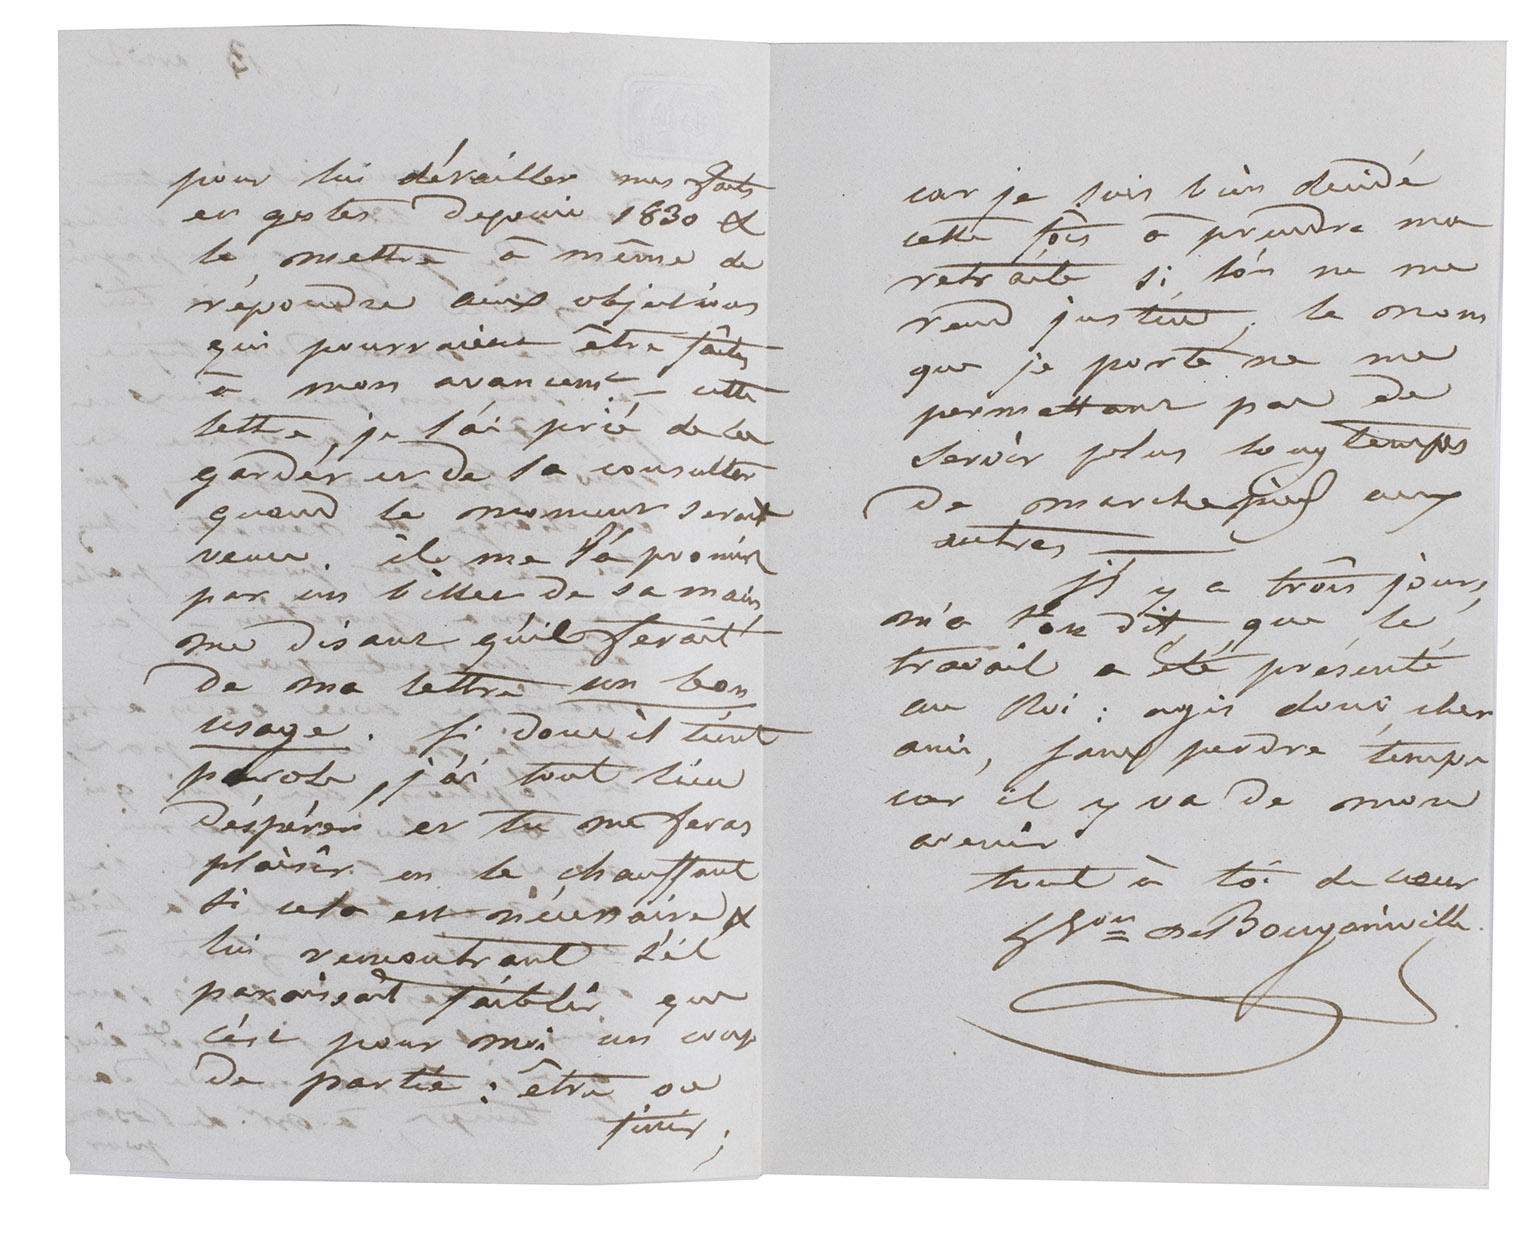 pour lui détailler mes faits
et gestes depuis 1830 &
le mettre à même de
répondre aux objections
qui pourraient être faites
à mon avancemt – cette
lettre, je l'ai prié de la
garder et de la consulter
quand le moment serait
venu. il me l'a promis
par un billet de sa main,
me disant qu'il ferait
de ma lettre un bon
usage. Si donc il tient
parole, j'ai tout lieu
d'espérer et tu me feras
plaisir en le chauffant
si cela est nécessaire &
lui remontrant s'il
paraissait faiblir que
c'est pour moi un coup
de partie : être ou
finir ;
car je suis bien décidé
cette fois à prendre ma
retraite si l'on ne me
rend justice, le nom
que je porte ne me
permettant pas de
servir plus longtemps
de marchepied aux
autres —
Il y a trois jours,
m'a t'on dit, que le
travail a été présenté
au Roi : agis donc, cher
ami, sans perdre temps
car il y va de mon
avenir
tout à toi de cœur
de Bougainville